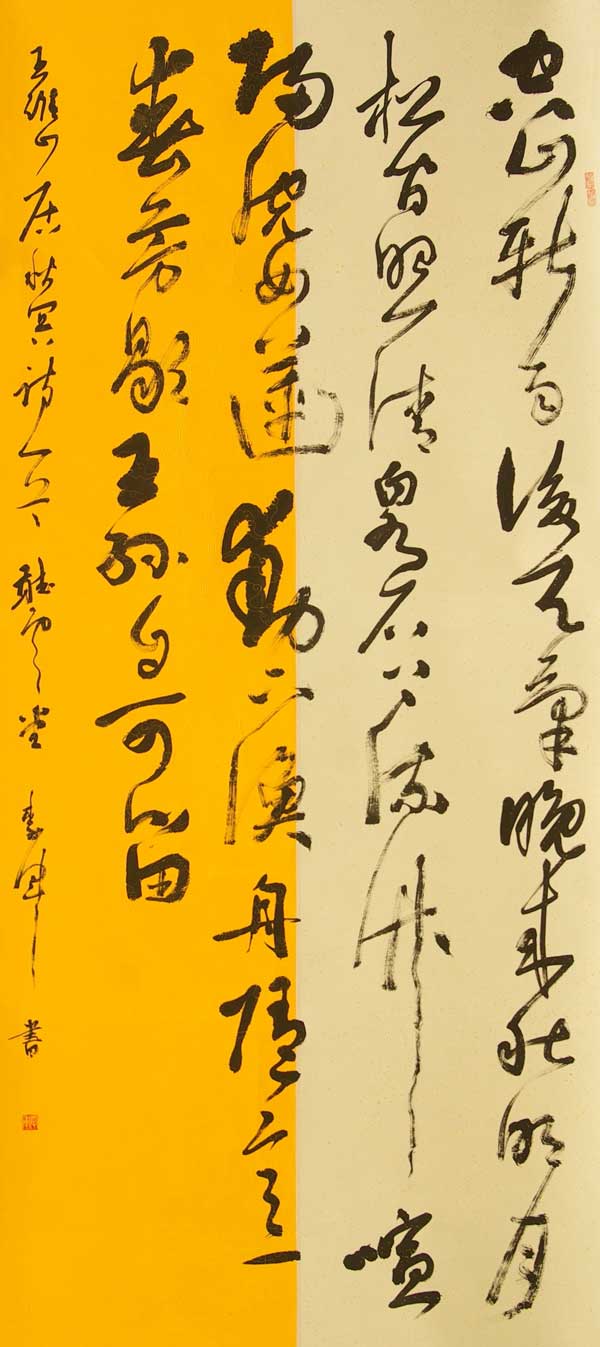 空山新雨後天氣晚來秋明月
松間照清泉石上流竹喧
歸浣女蓮動下漁舟隨意
春芳歇王孫自可留
王維山居秋冥詩一首 聽雲堂 李 書